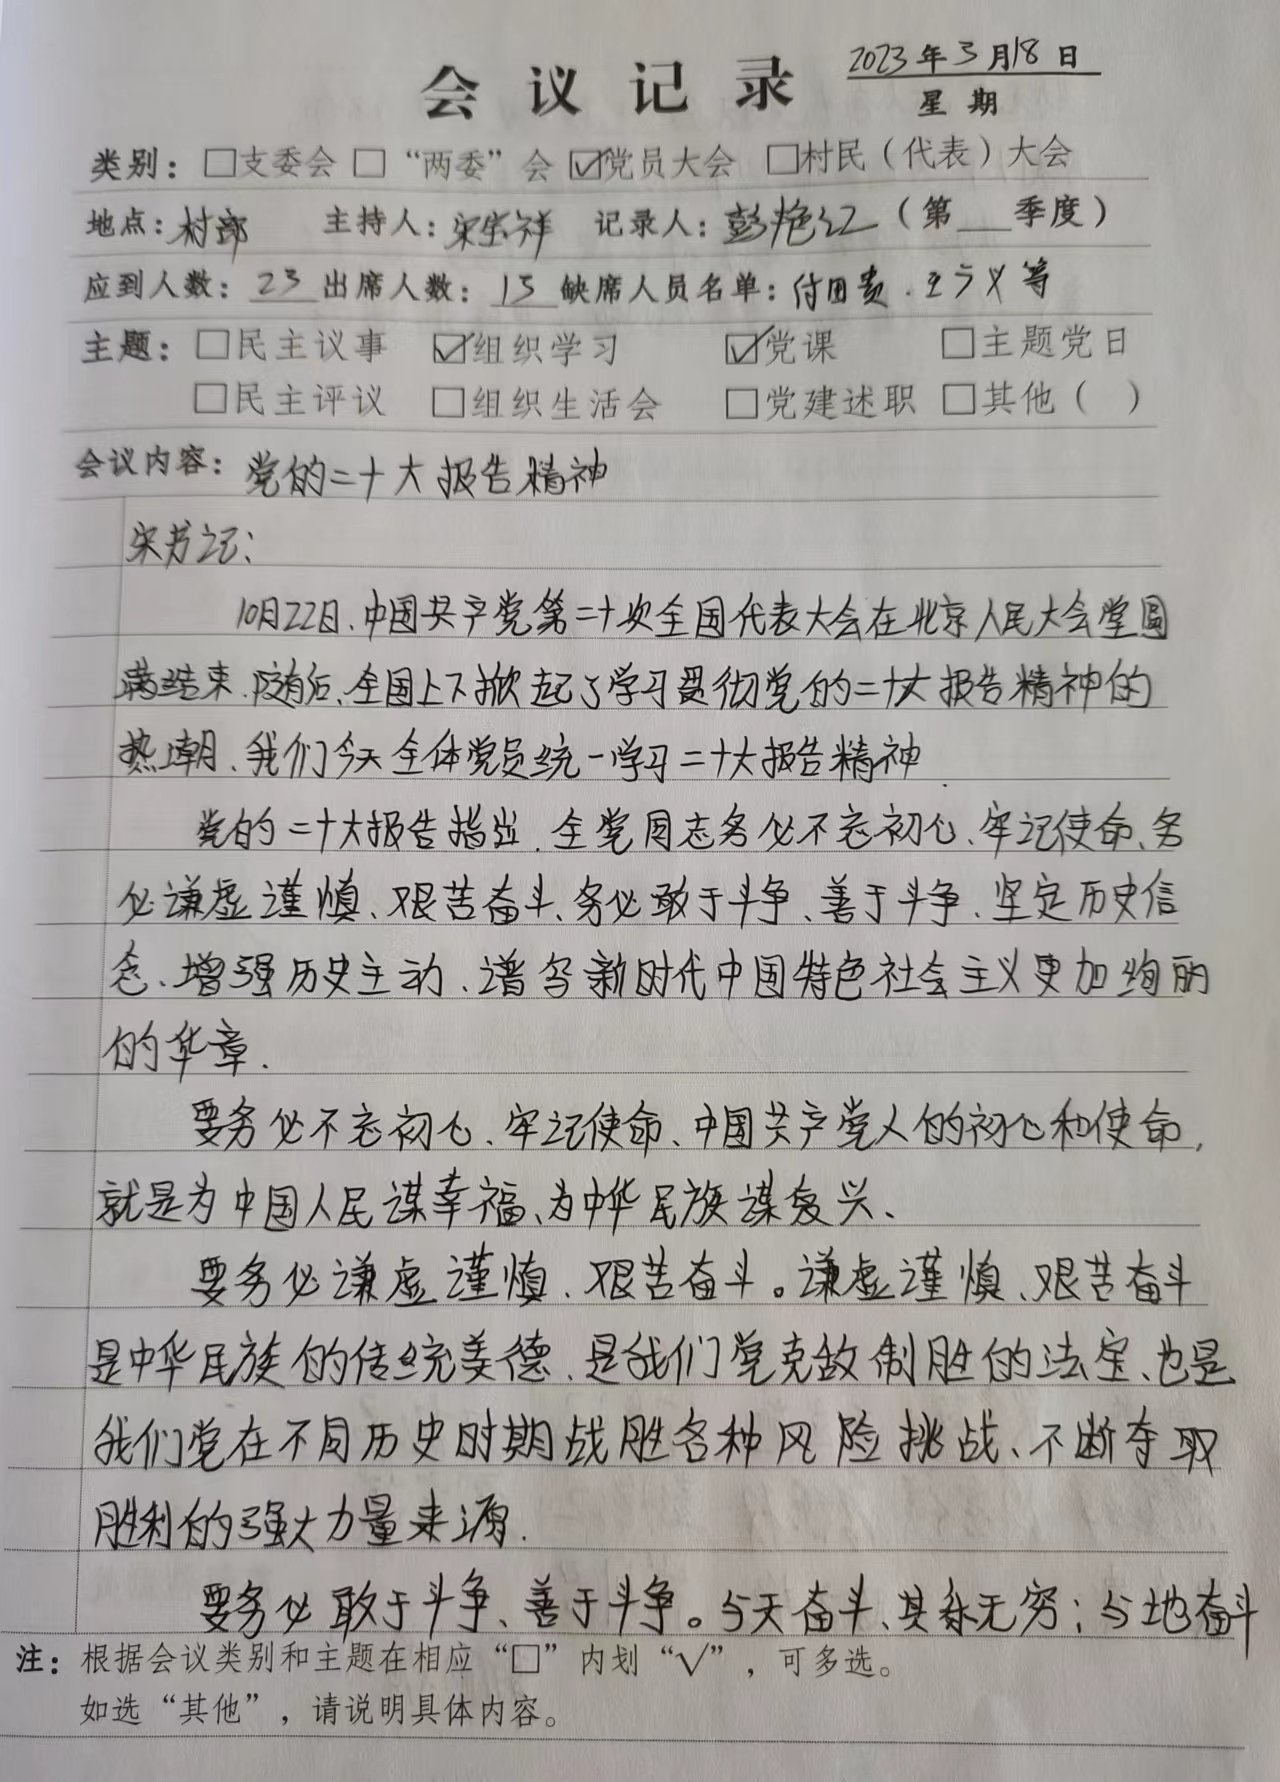 会议记录
2023年3月18日
星期
类别：□支委会 □“两委”会 ☑党员大会 □村民（代表）大会
地点：村部 主持人：宋宗祥 记录人：彭艳红（第___季度）
应到人数：23 出席人数：15 缺席人员名单：付田贵、王义等
主题：□民主议事 ☑组织学习 ☑党课 □主题党日
□民主评议 □组织生活会 □党建述职 □其他（ ）
会议内容：党的二十大报告精神
宋书记：
10月22日、中国共产党第二十次全国代表大会在北京人民大会堂圆
满结束、随后、全国上下掀起了学习贯彻党的二十大报告精神的
热潮、我们今天全体党员统一学习二十大报告精神
党的二十大报告指出、全党同志务必不忘初心、牢记使命、务
必谦虚谨慎、艰苦奋斗、务必敢于斗争、善于斗争、坚定历史信
念、增强历史主动、谱写新时代中国特色社会主义更加绚丽
的华章.
要务必不忘初心、牢记使命、中国共产党人的初心和使命,
就是为中国人民谋幸福、为中华民族谋复兴、
要务必谦虚谨慎、艰苦奋斗。谦虚谨慎、艰苦奋斗
是中华民族的传统美德、是我们党克敌制胜的法宝、也是
我们党在不同历史时期战胜各种风险挑战、不断夺取
胜利的强大力量来源.
要务必敢于斗争、善于斗争。与天奋斗、其乐无穷；与地奋斗
注：根据会议类别和主题在相应“□”内划“√”，可多选。
如选“其他”，请说明具体内容。